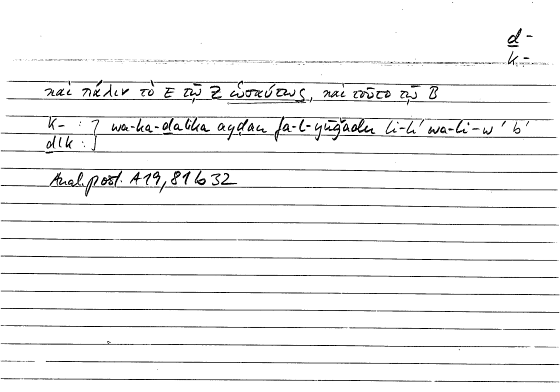 d̲ -
k -
καὶ πάλιν τὸ Ε τῷ Ζ ὡσαύτως, καὶ τοῦτο τῷ Β
k- : } wa-ka-d̲ālika ayḍan fa-l-yūǧadu li-
d̲lk :
Anal. post. A 19, 81 b 32